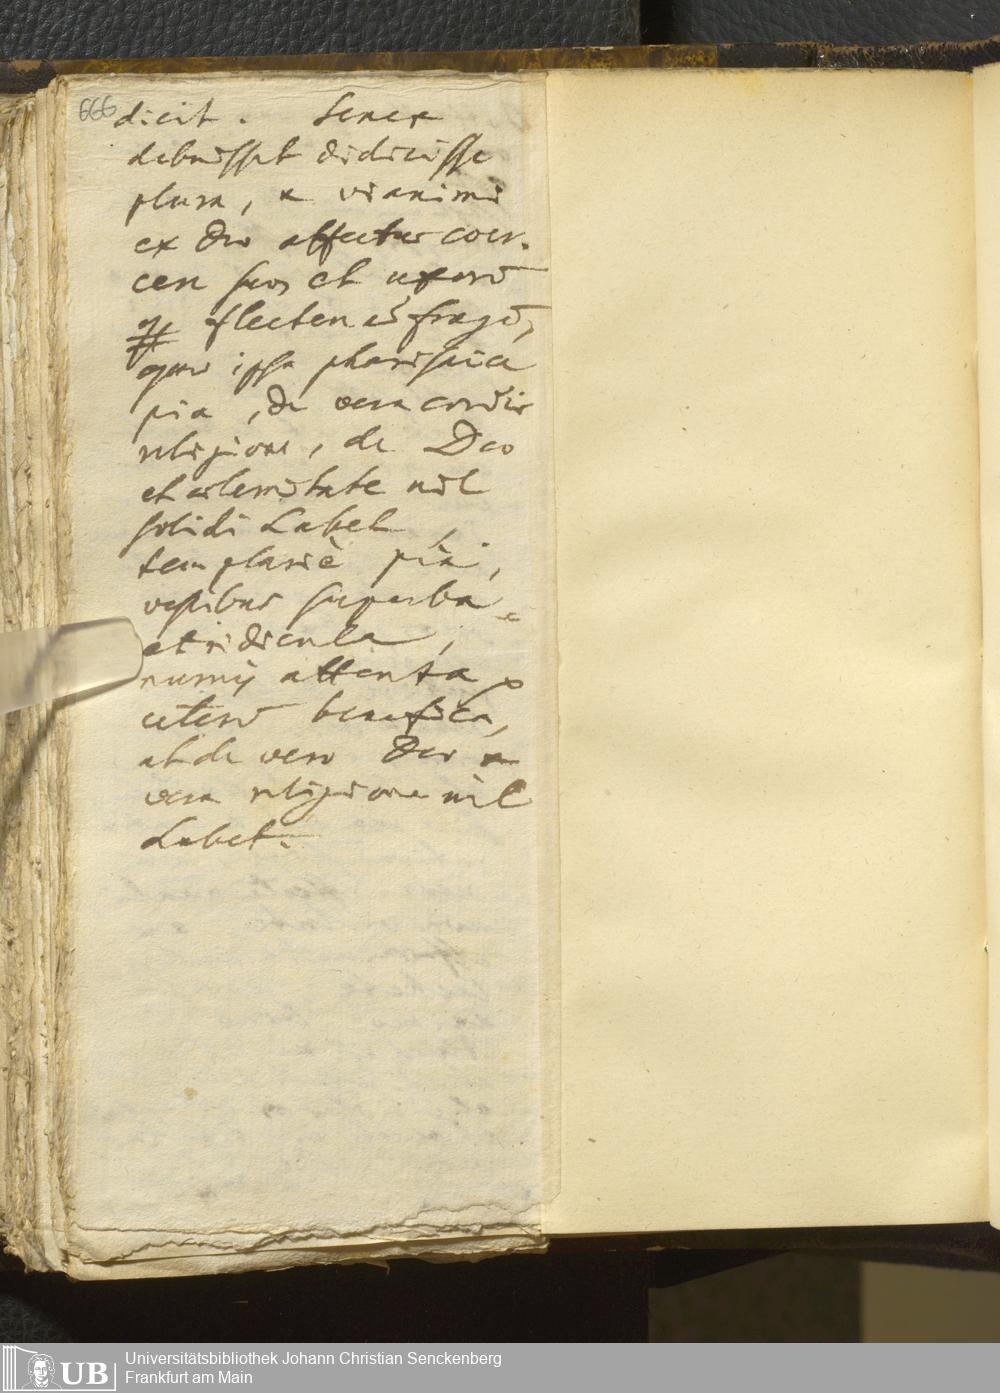 666
dicit. Senex
debuisset didicisse
plura, a vi animi
ex Deo affectus coer-
cere suos et uxorē
flectere aū frangē,
quae ipsa pharisaice
pia, de vera cordis
religione, de Deo
et aeternitate nil
solidi habet,
templariè pia,
vestibus superba
et ridicula,
numis attenta
ceterū benefica,
at de vero Deo a
vera religione nil
habet.
UB
Universitätsbibliothek Johann Christian Senckenberg
Frankfurt am Main